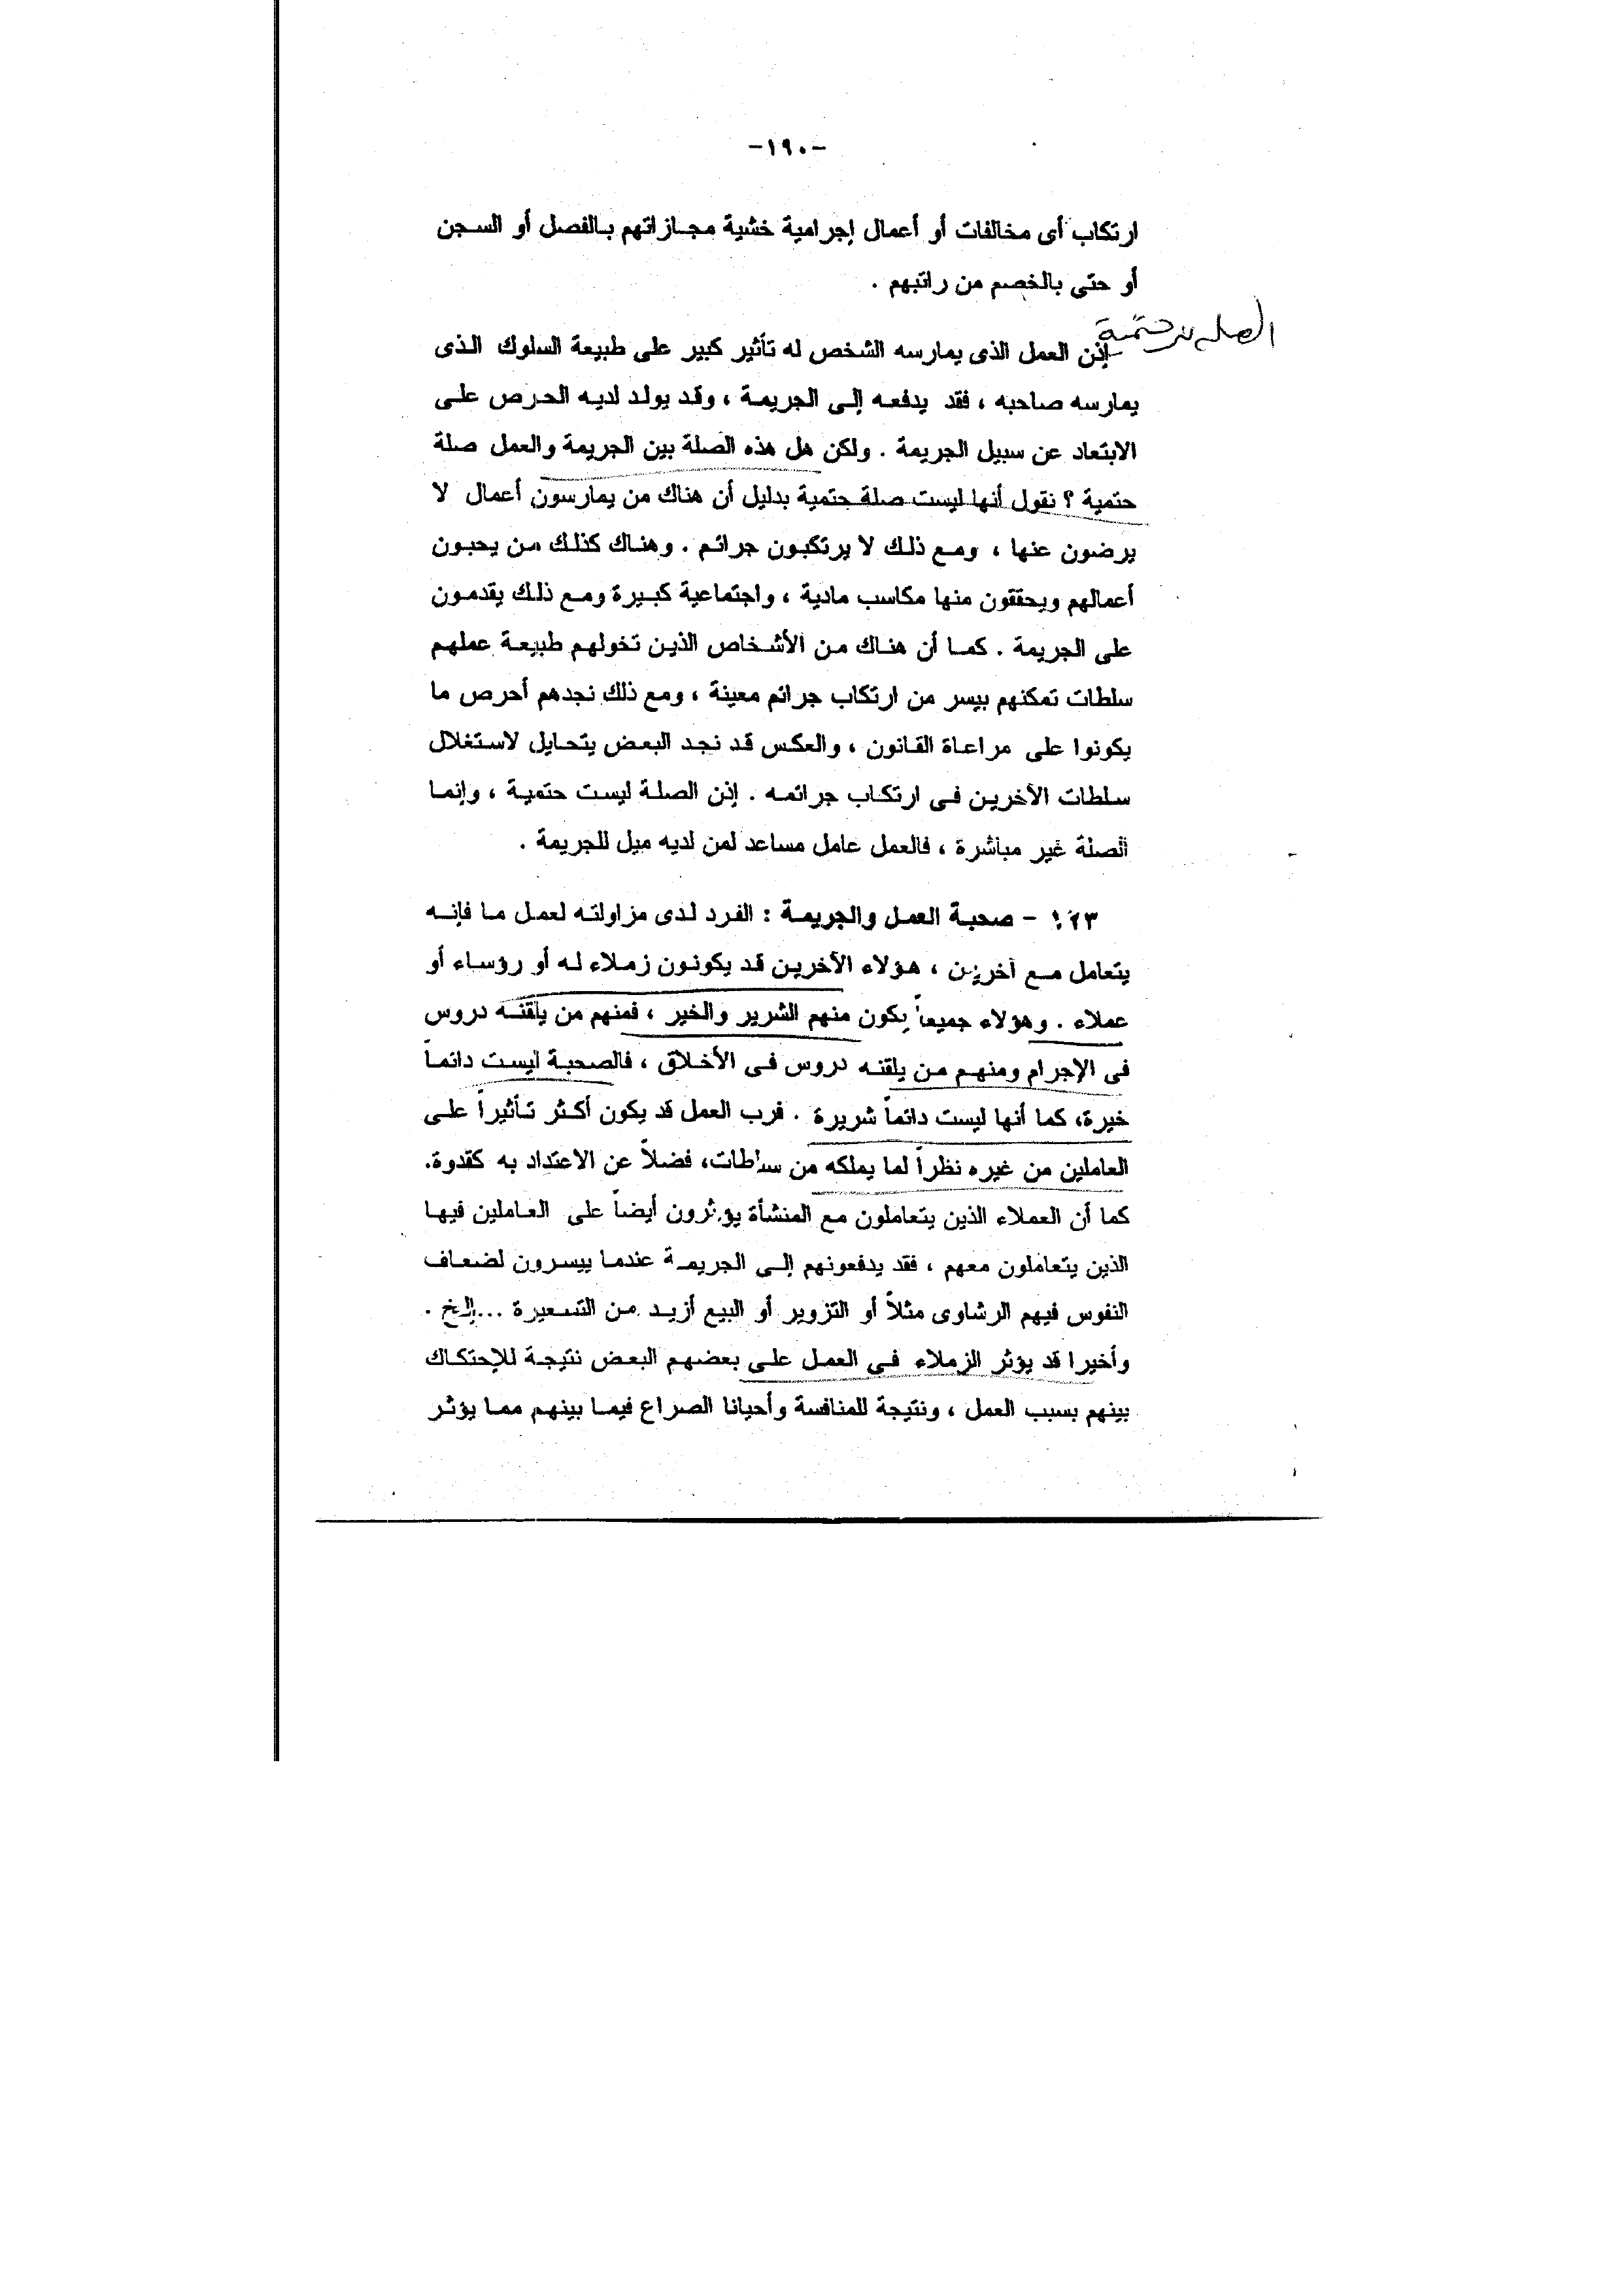 -١٩٠-
ارتكاب أى مخالفات أو أعمال إجرامية خشية مجازاتهم بالفصل أو السجن
أو حتى بالخصم من راتبهم .
إذن العمل الذى يمارسه الشخص له تأثير كبير على طبيعة السلوك الذى
يمارسه صاحبه ، فقد يدفعه إلى الجريمة ، وقد يولد لديه الحرص على
الابتعاد عن سبيل الجريمة . ولكن هل هذه الصلة بين الجريمة والعمل صلة
حتمية ؟ نقول أنها ليست صلة حتمية بدليل أن هناك من يمارسون أعمال لا
يرضون عنها ، ومع ذلك لا يرتكبون جرائم . وهناك كذلك من يحبون
أعمالهم ويحققون منها مكاسب مادية ، واجتماعية كبيرة ومع ذلك يقدمون
على الجريمة . كما أن هناك من الأشخاص الذين تخولهم طبيعة عملهم
سلطات تمكنهم بيسر من ارتكاب جرائم معينة ، ومع ذلك نجدهم أحرص ما
يكونوا على مراعاة القانون ، والعكس قد نجد البعض يتحايل لاستغلال
سلطات الآخرين فى ارتكاب جرائمه . إذن الصلة ليست حتمية ، وإنما
الصلة غير مباشرة ، فالعمل عامل مساعد لمن لديه ميل للجريمة .
١٢٣ - صحبة العمل والجريمة : الفرد لدى مزاولته لعمل ما فإنه
يتعامل مع آخرين ، هؤلاء الآخرين قد يكونون زملاء له أو رؤساء أو
عملاء . وهؤلاء جميعاً يكون منهم الشرير والخير ، فمنهم من يلقنه دروس
فى الإجرام ومنهم من يلقنه دروس فى الأخلاق ، فالصحبة ليست دائماً
خيرة، كما أنها ليست دائماً شريرة . فرب العمل قد يكون أكثر تأثيراً على
العاملين من غيره نظراً لما يملكه من سلطات، فضلاً عن الاعتداد به كقدوة.
كما أن العملاء الذين يتعاملون مع المنشأة يؤثرون أيضاً على العاملين فيها
الذين يتعاملون معهم ، فقد يدفعونهم إلى الجريمة عندما ييسرون لضعاف
النفوس فيهم الرشاوى مثلاً أو التزوير أو البيع أزيد من التسعيرة ...إلخ .
وأخيرا قد يؤثر الزملاء فى العمل على بعضهم البعض نتيجة للإحتكاك
بينهم بسبب العمل ، ونتيجة للمنافسة وأحيانا الصراع فيما بينهم مما يؤثر